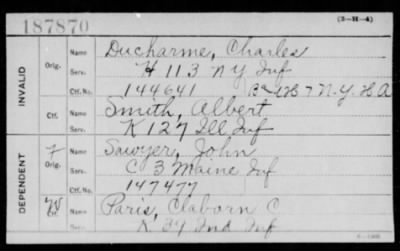 187870
(3-H-4)
INVALID
Orig.
Name Ducharme, Charles
Serv. H 113 N Y Inf
Ctf. No. 144641 N.Y. H A
Ctf.
Name Smith, Albert
Serv. K 127 Ill Inf
DEPENDENT
Orig.
Name Sawyer, John
Serv. C 3 Maine Inf
Ctf. No. 147477
Ctf.
Name Paris, Claborn C
Serv. K 34 Ind Inf